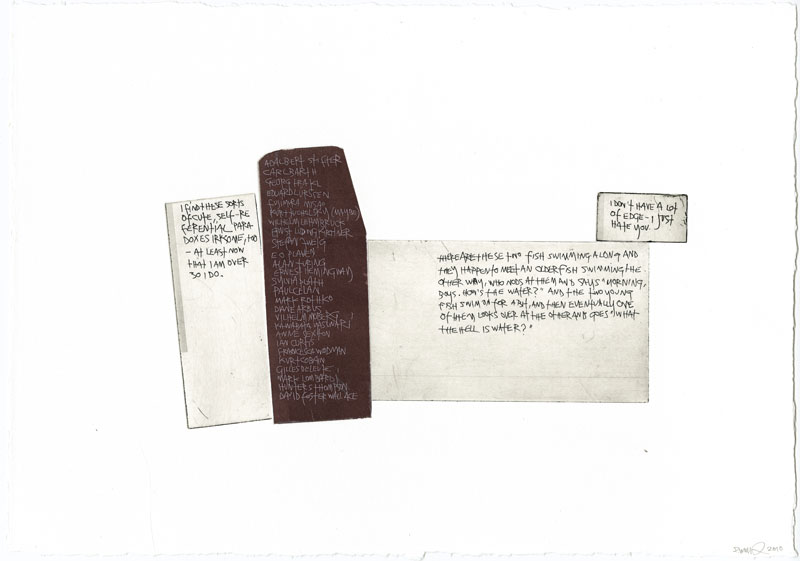 I FIND THESE SORTS
OF CUTE, SELF-RE
FERENTIAL PARA
DOXES IRKSOME, TOO
– AT LEAST NOW
THAT I AM OVER
30 I DO.
ADALBERT STIFTER
CARL BARTH
GEORG TRAKL
EDUARD
FUJIMURA MISAO
KURT TUCHOLSKY (MAYBE)
WILHELM LEHMBRUCK
ERNST LUDWIG KIRCHNER
STEFAN ZWEIG
E O PLAUEN
ALAN TURING
ERNEST HEMINGWAY
SYLVIA PLATH
PAUL CELAN
MARK ROTHKO
DIANE ARBUS
VILHELM MOBERG
KAWABATA YASUNARI
ANNE SEXTON
IAN CURTIS
FRANCESCA WOODMAN
KURT COBAIN
GILLES DELEUZE
MARK LOMBARDI
HUNTER S THOMPSON
DAVID FOSTER WALLACE
I DON'T HAVE A LOT
OF EDGE – I JUST
HATE YOU
THERE ARE THESE TWO FISH SWIMMING ALONG AND
THEY HAPPEN TO MEET AN OLDER FISH SWIMMING THE
OTHER WAY, WHO NODS AT THEM AND SAYS "MORNING,
BOYS. HOW'S THE WATER?" AND THE TWO YOUNG
FISH SWIM ON FOR A BIT, AND THEN EVENTUALLY ONE
OF THEM LOOKS OVER AT THE OTHER AND GOES "WHAT
THE HELL IS WATER?"
2010